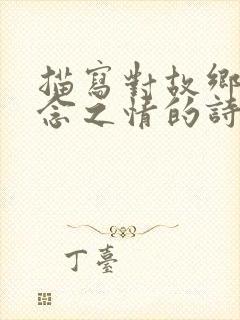 描寫對故鄉
念之情的詩
丁臺